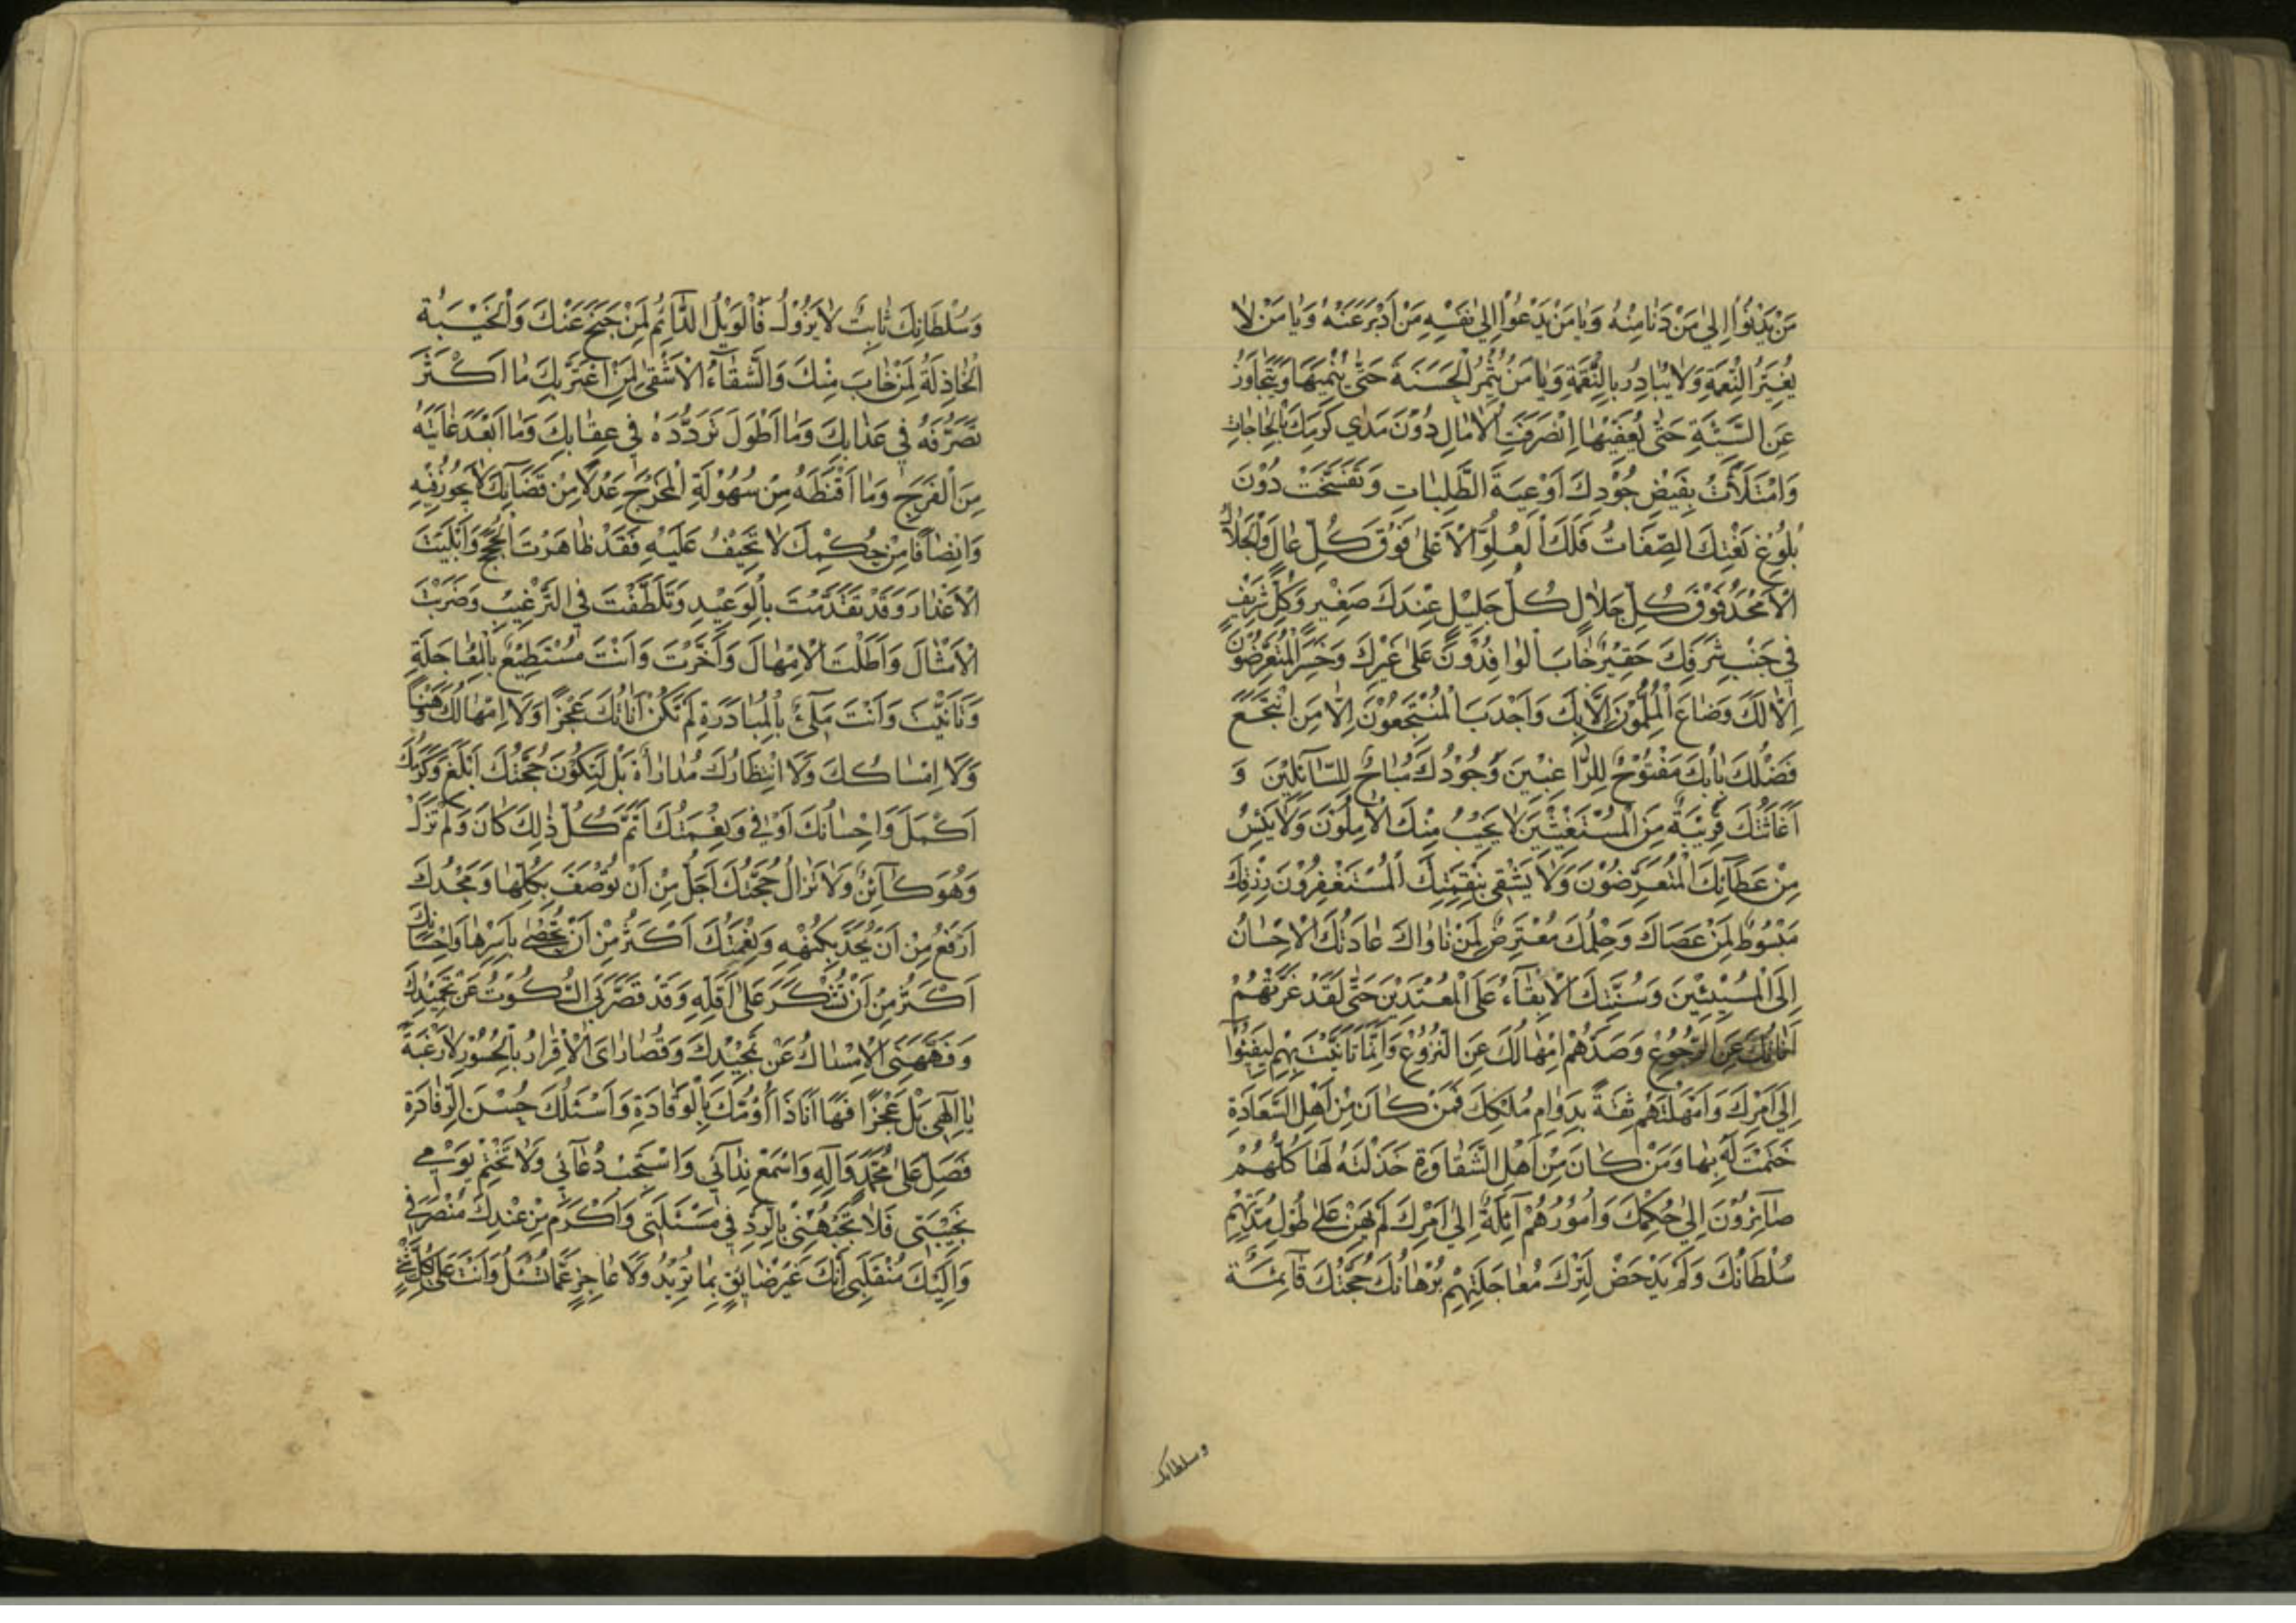 مَنْ يَدْنُوا اِلىٰ مَنْ دَنٰا مِنْهُ وَيٰا مَنْ يَدْعُوا اِلىٰ نَفْسِهِ مَنْ اَدْبَرَ عَنْهُ وَيٰا مَنْ لٰا
يُغَيِّرُ النِّعْمَةِ وَلاٰ يُبٰادِرُ بِالنِّقْمَةِ وَيٰا مَنْ يُثْمِرُ الْحَسَنَةَ حَتّٰى يُنْمِيَهٰا وَيَتَجٰاوَزُ
عَنِ السَّيِّئَةِ حَتّٰى يُعَفِّيَهٰا اِنْصَرَفَتِ الْاٰمٰالِ دُوْنَ مَدٰى كَرَمِكَ بِالْحٰاجٰاتِ
وَامْتَلَأَتْ بِفَيْضِ جُوْدِكَ اَوْعِيَةُ الطَّلِبٰاتِ وَتَفَسَّخَتْ دُوْنَ
بُلُوْغِ نَعْتِكَ الصِّفٰاتُ فَلَكَ الْعُلُوُّ الْاَعْلىٰ فَوْقَ كُلِّ عٰالٍ وَالْجَلاٰلُ
الْاَمْجَدُ فَوْقَ كُلِّ جَلاٰلٍ كُلُّ جَلِيْلٍ عِنْدَكَ صَغِيْرٌ وَكُلُّ شَرِيْفٍ
فِي جَنْبِ شَرَفِكَ حَقِيْرٌ خٰابَ الْوٰافِدُوْنَ عَلىٰ غَيْرِكَ وَخَسِرَ الْمُتَعَرِّضُوْنَ
اِلاّٰ لَكَ وَضٰاعَ الْمُلِمُّوْنَ اِلاّٰ بِكَ وَاَجْدَبَ الْمُنْتَجِعُوْنَ اِلاّٰ مَنِ انْتَجَعَ
فَضْلَكَ بٰابُكَ مَفْتُوْحٌ لِلرّٰاغِبِيْنَ وَجُوْدُكَ مُبٰاحٌ لِلسّٰآئِلِيْنَ وَ
اِغٰاثَتُكَ قَرِيْبَةٌ مِنَ الْمُسْتَغِيْثِيْنَ لٰا يَخِيْبُ مِنْكَ الْاٰمِلُوْنَ وَلٰا يَيْئَسُ
مِنْ عَطٰآئِكَ الْمُتَعَرِّضُوْنَ وَلٰا يَشْقىٰ بِنِقْمَتِكَ الْمُسْتَغْفِرُوْنَ رِزْقُكَ
مَبْسُوْطٌ لِمَنْ عَصٰاكَ وَحِلْمُكَ مُعْتَرِضٌ لِمَنْ نٰاوٰاكَ عٰادَتُكَ الْاِحْسٰانُ
اِلَى الْمُسِيْئِيْنَ وَسُنَّتُكَ الْاِبْقٰآءُ عَلَى الْمُعْتَدِيْنَ حَتّٰى لَقَدْ غَرَّتْهُمْ
اَنٰاتُكَ عَنِ الرُّجُوْعِ وَصَدَّهُمْ اِمْهٰالُكَ عَنِ النُّزُوْعِ وَاِنَّمٰا تَاَنَّيْتَ بِهِمْ لِيَفِيْئُوْا
اِلىٰ اَمْرِكَ وَاَمْهَلْتَهُمْ ثِقَةً بِدَوٰامِ مُلْكِكَ فَمَنْ كٰانَ مِنْ اَهْلِ السَّعٰادَةِ
خَتَمْتَ لَهُ بِهٰا وَمَنْ كٰانَ مِنْ اَهْلِ الشَّقٰاوَةِ خَذَلْتَهُ لَهٰا كُلُّهُمْ
صٰآئِرُوْنَ اِلىٰ حُكْمِكَ وَاُمُوْرُهُمْ اٰئِلَةٌ اِلىٰ اَمْرِكَ لَمْ يَهِنْ عَلىٰ طُوْلِ مُدَّتِهِمْ
سُلْطٰانُكَ وَلَمْ يَدْحَضْ لِتَرْكِ مُعٰاجَلَتِهِمْ بُرْهٰانُكَ حُجَّتُكَ قٰآئِمَةٌ
وسلطانك
وَسُلْطٰانُكَ ثٰابِتٌ لاٰ يَزُوْلُ فَالْوَيْلُ الدّٰآئِمُ لِمَنْ جَنَحَ عَنْكَ وَالْخَيْبَةُ
الْخٰاذِلَةُ لِمَنْ خٰابَ مِنْكَ وَالشَّقٰآءُ الْاَشْقىٰ لِمَنِ اغْتَرَّ بِكَ مٰا اَكْثَرَ
تَصَرُّفَهُ فِي عَذٰابِكَ وَمٰا اَطْوَلَ تَرَدُّدَهُ فِي عِقٰابِكَ وَمٰا اَبْعَدَ غٰايَتَهُ
مِنَ الْفَرَجِ وَمٰا اَقْنَطَهُ مِنْ سُهُوْلَةِ الْمَخْرَجِ عَدْلاً مِنْ قَضٰآئِكَ لٰا يَجُوْرُ فِيْهِ
وَاِنْصٰافًا مِنْ حُكْمِكَ لاٰ تَحِيْفُ عَلَيْهِ فَقَدْ ظٰاهَرْتَ الْحُجَجَ وَاَبْلَيْتَ
الْاَعْذٰارَ وَقَدْ تَقَدَّمْتَ بِالْوَعِيْدِ وَتَلَطَّفْتَ فِي التَّرْغِيْبِ وَضَرَبْتَ
الْاَمْثٰالَ وَاَطَلْتَ الْاِمْهٰالَ وَاَخَّرْتَ وَاَنْتَ مُسْتَطِيْعٌ بِالْمُعٰاجَلَةِ
وَتَاَنَّيْتَ وَاَنْتَ مَلِئٌ بِالْمُبٰادَرَةِ لَمْ تَكُنْ اَنٰاتُكَ عَجْزًا وَلٰا اِمْهٰالُكَ وَهْنًا
وَلٰا اِمْسٰاكُكَ وَلٰا انْتِظٰارُكَ مُدٰارٰاةً بَلْ لِتَكُوْنَ حُجَّتُكَ اَبْلَغَ وَكَرَمُكَ
اَكْمَلَ وَاِحْسٰانُكَ اَوْفىٰ وَنِعْمَتُكَ اَتَمَّ كُلُّ ذٰلِكَ كٰانَ وَلَمْ تَزَلْ
وَهُوَ كٰائِنٌ وَلٰا تَزٰالُ حُجَّتُكَ اَجَلُّ مِنْ اَنْ تُوْصَفَ بِكُلِّهٰا وَمَجْدُكَ
اَرْفَعُ مِنْ اَنْ يُحَدَّ بِكُنْهِهِ وَنِعْمَتُكَ اَكْثَرُ مِنْ اَنْ تُحْصٰى بِاَسْرِهٰا وَاِحْسٰانُكَ
اَكْثَرُ مِنْ اَنْ تُشْكَرَ عَلىٰ اَقَلِّهِ وَقَدْ قَصَّرَ بِيَ السُّكُوْتُ عَنْ تَحْمِيْدِكَ
وَفَهَّهَنِيَ الْاِمْسٰاكُ عَنْ تَمْجِيْدِكَ وَقُصٰارٰايَ الْاِقْرٰارُ بِالْحُسُوْرِ لٰا رَغْبَةً
يٰا اِلٰهِي بَلْ عَجْزًا فَهٰا اَنَا ذَا اَؤُمُّكَ بِالْوَفٰادَةِ وَاَسْئَلُكَ حُسْنَ الرِّفٰادَةِ
فَصَلِّ عَلىٰ مُحَمَّدٍ وَاٰلِهِ وَاسْمَعْ نِدٰآئِي وَاسْتَجِبْ دُعٰآئِي وَلٰا تَخْتِمْ يَوْمِي
بِخَيْبَتِي فَلٰا تَجْبَهْنِي بِالرَّدِّ فِي مَسْئَلَتِي وَاَكْرِمْ مِنْ عِنْدِكَ مُنْصَرَفِي
وَاِلَيْكَ مُنْقَلَبِي اِنَّكَ غَيْرُ ضٰايِقٍ بِمٰا تُرِيْدُ وَلٰا عٰاجِزٍ عَمّٰا تُسْئَلُ وَاَنْتَ عَلىٰ كُلِّ شَيْءٍ